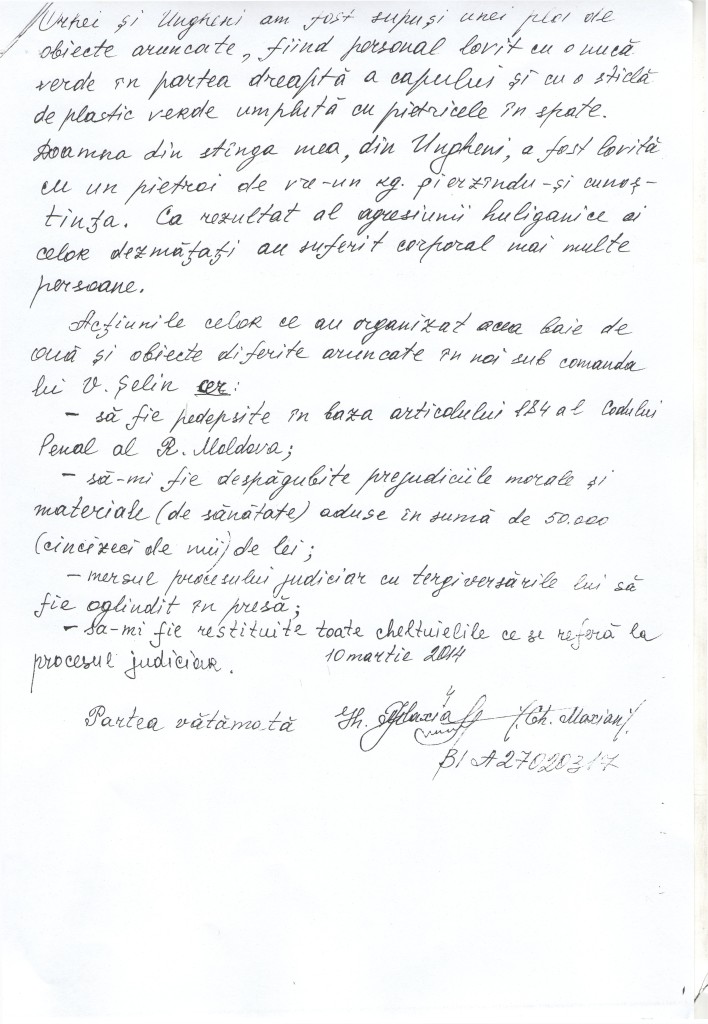 Orhei și Ungheni am fost supuși unei ploi de
obiecte aruncate, fiind personal lovit cu o nucă
verde în partea dreaptă a capului și cu o sticlă
de plastic verde umplută cu pietricele în spate.
Doamna din stînga mea, din Ungheni, a fost lovită
cu un pietroi de vre-un kg. pierzîndu-și cunoș-
tința. Ca rezultat al agresiunii huliganice ai
celor dezmățați au suferit corporal mai multe
persoane.
Acțiunile celor ce au organizat acea baie de
ouă și obiecte diferite aruncate în noi sub comanda
lui V. Șelin cer:
- să fie pedepsite în baza articolului 184 al Codului
Penal al R. Moldova;
- să-mi fie despăgubite prejudiciile morale și
materiale (de sănătate) aduse în sumă de 50.000
(cincizeci de mii) de lei;
- mersul procesului judiciar cu tergiversările lui să
fie oglindit în presă;
- sa-mi fie restituite toate cheltuielile ce se referă la
procesul judiciar. 10 martie 2014
Partea vătămată Gh. /Gh. Marian/.
BI A27020317